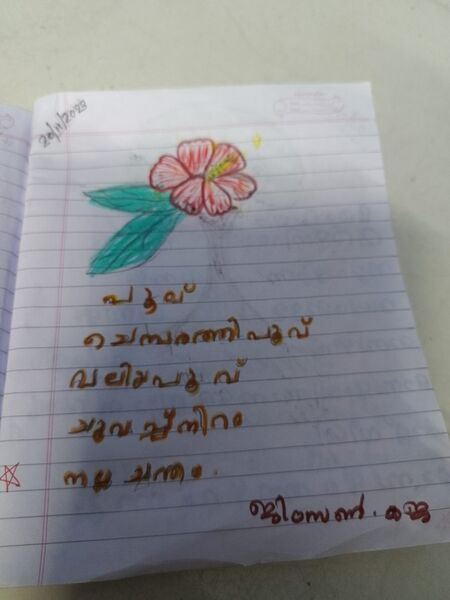 20/11/2023
പൂവ്
ചെമ്പരത്തിപൂവ്
വലിയപൂവ്
ചുവപ്പ്നിറം
നല്ല ചന്തം.